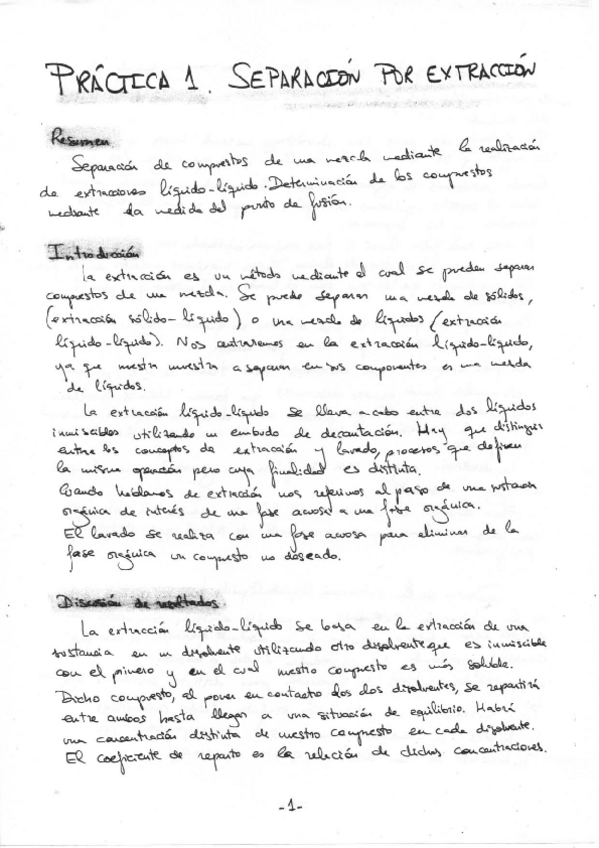 PRÁCTICA 1. SEPARACIÓN POR EXTRACCIÓN
Resumen
Separación de compuestos de una mezcla mediante la realización
de extracciones líquido-líquido. Determinación de los compuestos
mediante la medida del punto de fusión.
Introducción
La extracción es un método mediante el cual se pueden separar
compuestos de una mezcla. Se puede separar una mezcla de sólidos,
(extracción sólido-líquido) o una mezcla de líquidos (extracción
líquido-líquido). Nos centraremos en la extracción líquido-líquido,
ya que nuestra muestra a separar en sus componentes es una mezcla
de líquidos.
La extracción líquido-líquido se lleva a cabo entre dos líquidos
inmiscibles utilizando un embudo de decantación. Hay que distinguir
entre los conceptos de extracción y lavado, procesos que definen
la misma operación pero cuya finalidad es distinta.
Cuando hablamos de extracción nos referimos al paso de una sustancia
orgánica de interés de una fase acuosa a una fase orgánica.
El lavado se realiza con una fase acuosa para eliminar de la
fase orgánica un compuesto no deseado.
Discusión de resultados
La extracción líquido-líquido se basa en la extracción de una
sustancia en un disolvente utilizando otro disolvente que es inmiscible
con el primero y en el cual nuestro compuesto es más soluble.
Dicho compuesto, al poner en contacto los dos disolventes, se repartirá
entre ambos hasta llegar a una situación de equilibrio. Habrá
una concentración distinta de nuestro compuesto en cada disolvente.
El coeficiente de reparto es la relación de dichas concentraciones.
-1-